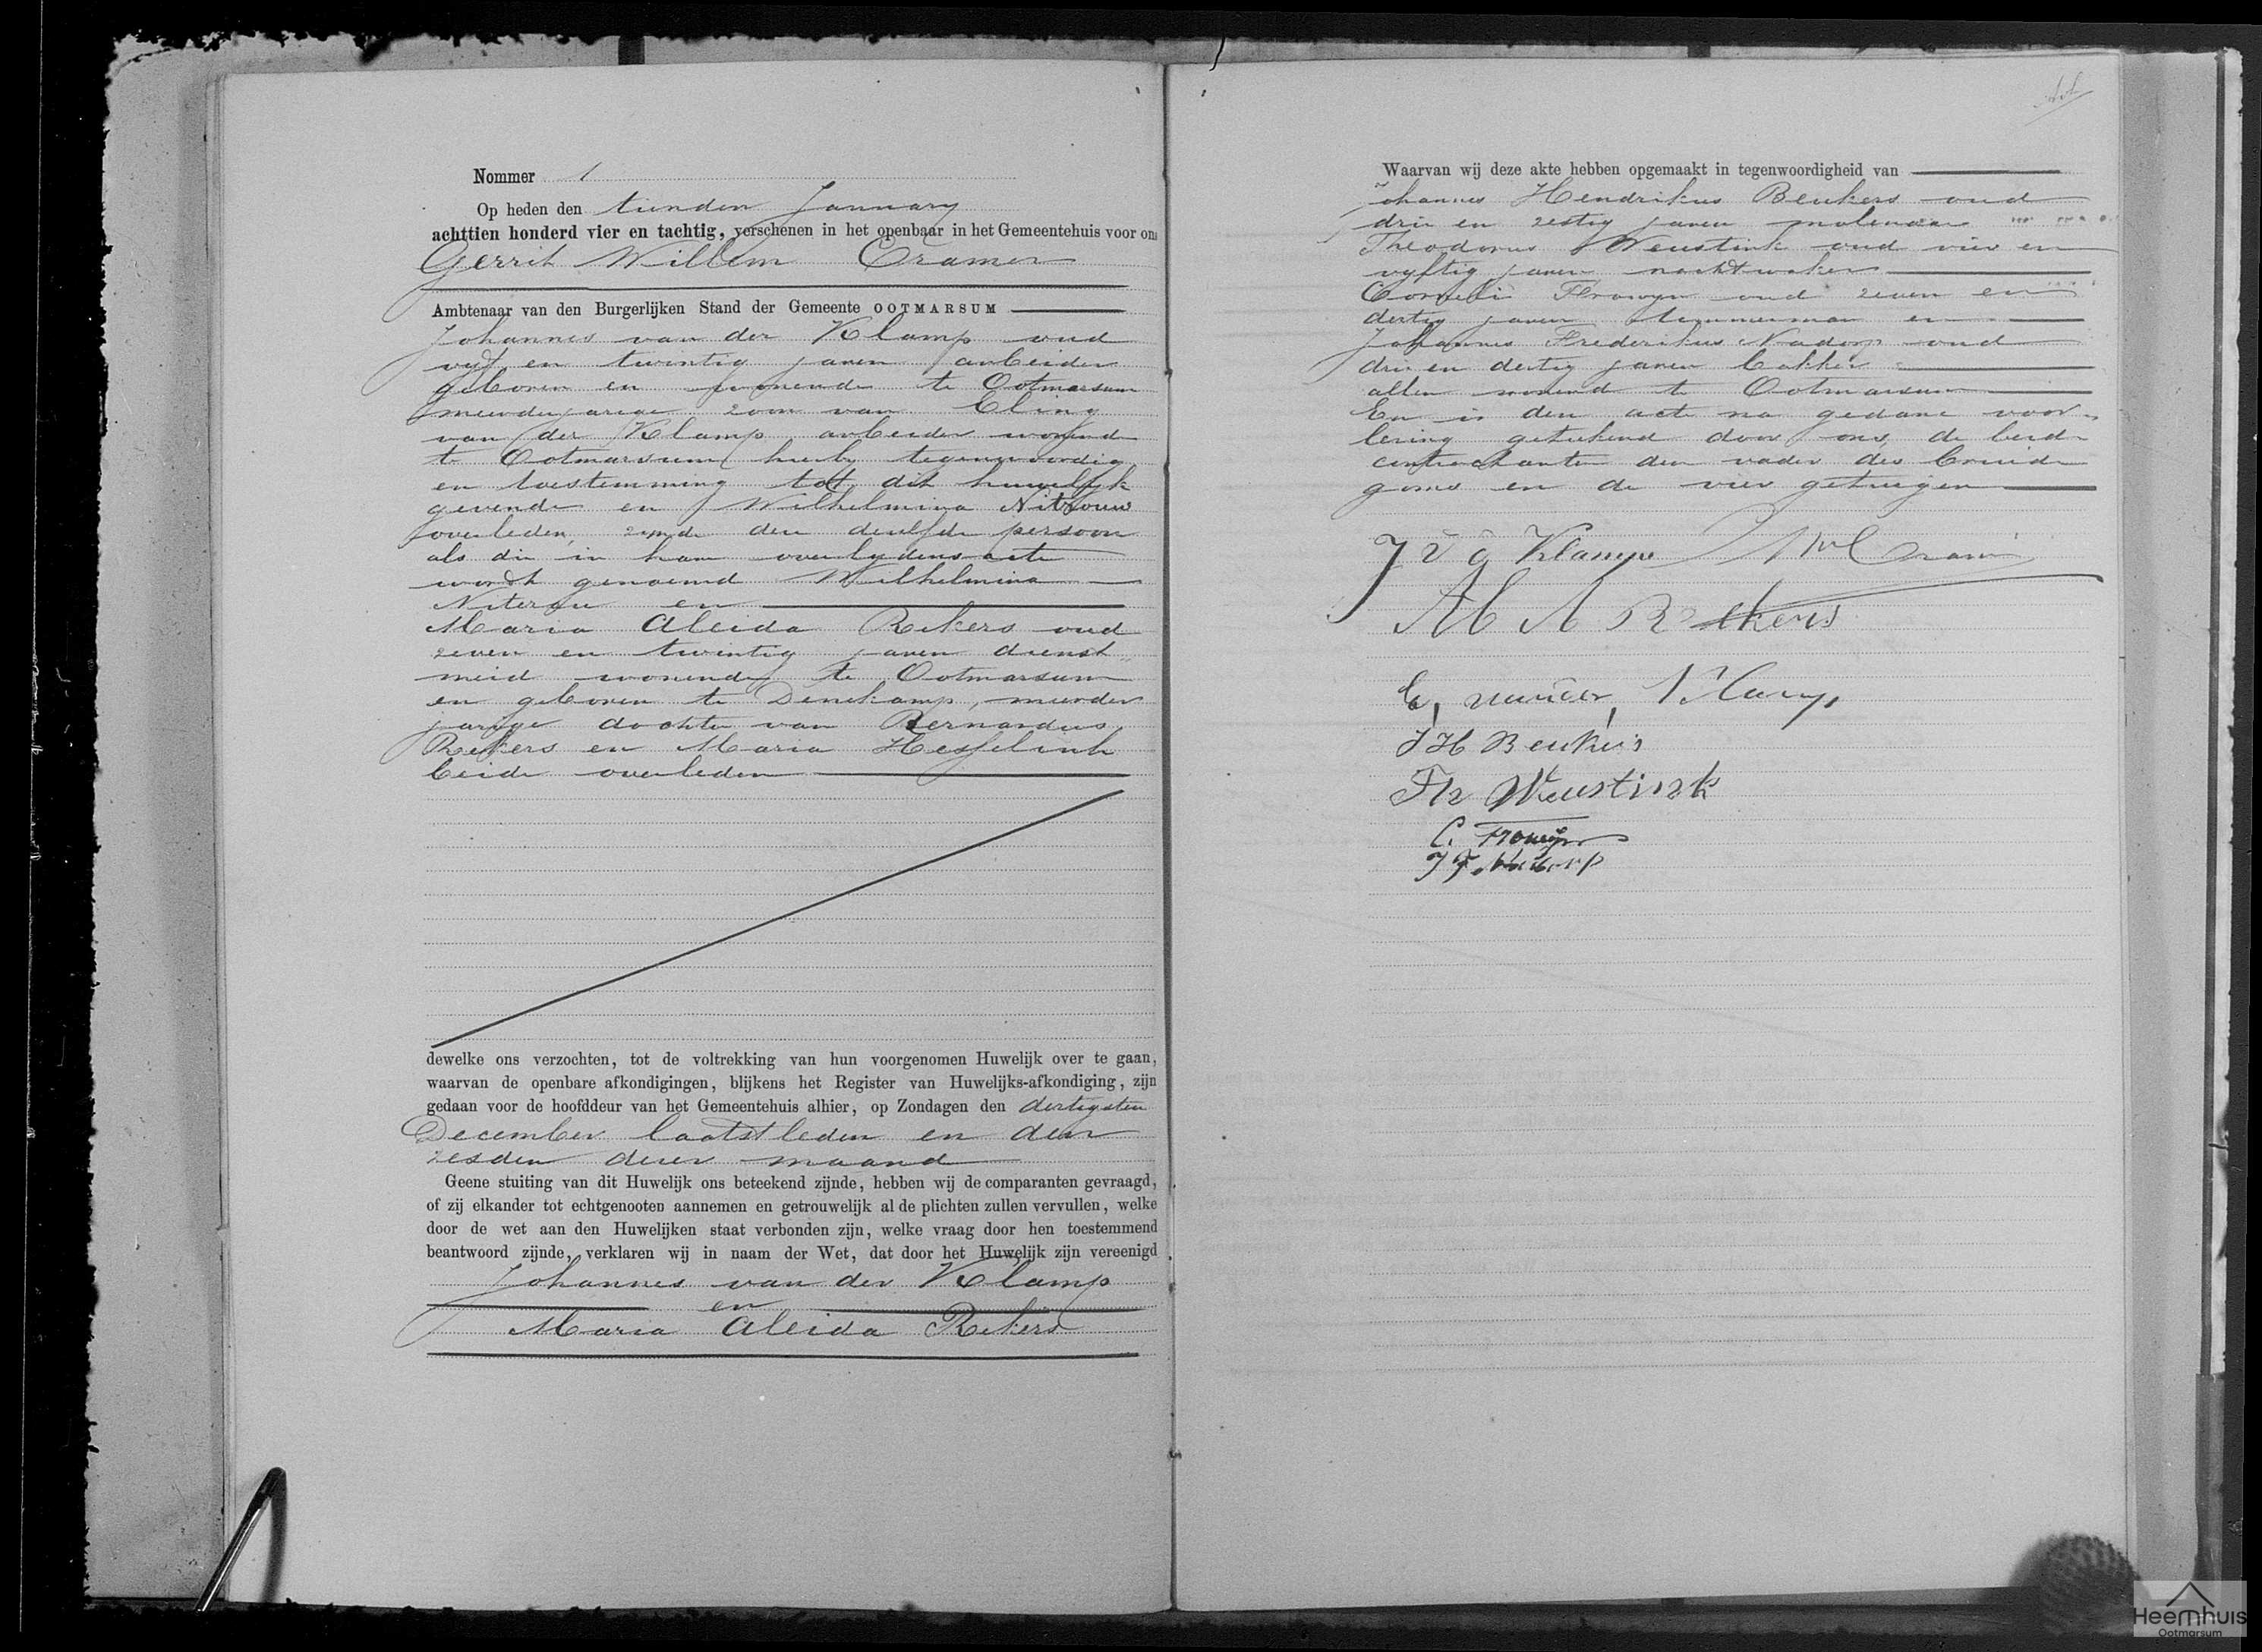 Nommer 1
Op heden den tienden January
achttien honderd vier en tachtig, verschenen in het openbaar in het Gemeentehuis voor ons
Gerrit Willem Cramer
Ambtenaar van den Burgerlijken Stand der Gemeente OOTMARSUM
Johannes van der Klamp oud
vyf en twintig jaren arbeider
geboren en wonende te Ootmarsum
meerderjarige zoon van Eling
van der Klamp arbeider wonend
te Ootmarsum hierby tegenwoordig
en toestemming tot dit huwelyk
gevende en Wilhelmina Nitrouw
overleden, zynde den deselfde persoon
als die in haar overlydens acte
wordt genoemd Wilhelmina
Niterou en
Maria Aleida Rekers oud
zeven en twintig jaren dienst
meid wonende te Ootmarsum
en geboren te Denekamp, meerder
jarige dochter van Bernardus
Rekers en Maria Hesselink
beide overleden
dewelke ons verzochten, tot de voltrekking van hun voorgenomen Huwelijk over te gaan,
waarvan de openbare afkondigingen, blijkens het Register van Huwelijks-afkondiging, zijn
gedaan voor de hoofddeur van het Gemeentehuis alhier, op Zondagen den dertigsten
December laatstleden en den
zesden dezer maand
Geene stuiting van dit Huwelijk ons beteekend zijnde, hebben wij de comparanten gevraagd,
of zij elkander tot echtgenooten aannemen en getrouwelijk al de plichten zullen vervullen, welke
door de wet aan den Huwelijken staat verbonden zijn, welke vraag door hen toestemmend
beantwoord zijnde, verklaren wij in naam der Wet, dat door het Huwelijk zijn vereenigd
Johannes van der Klamp
en
Maria Aleida Rekers
Waarvan wij deze akte hebben opgemaakt in tegenwoordigheid van
Johannes Hendrikus Beukers oud
drie en zestig jaren molenaar
Theodorus Weustink oud vier en
vyftig jaren nachtwaker
Corneli Frowyn oud zeven en
dertig jaren timmerman en
Johannes Frederikus Nadorp oud
drie en dertig jaren bakker
allen wonend te Ootmarsum
En is den acte na gedane voor
lezing geteekend door ons, de beide
contractanten den vader des bruide
goms en de vier getuigen
J v d Klamp GWCramer
M A Rekers
E, van der, Klamp,
J H Beukers
Th Weustink
C. Frowijn
J F Nadorp
Heemhuis
Ootmarsum